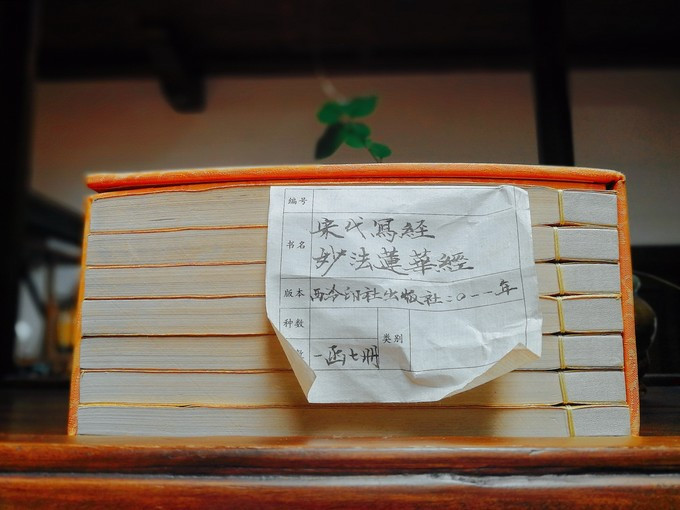 编号
书名 宋代寫經
妙法蓮華經
版本 西泠印社出版社二〇一一年
种数 类别
数 一函七册